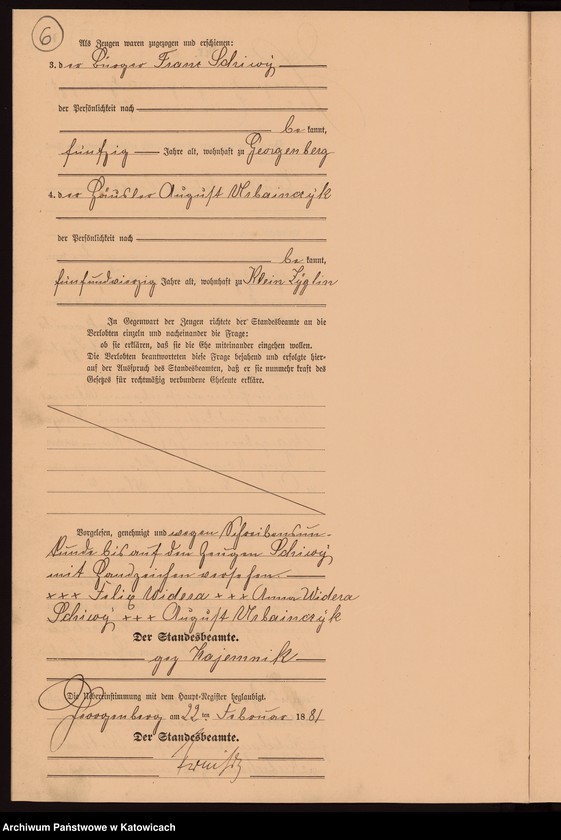 6
Als Zeugen waren zugezogen und erschienen:
3. der Bürger Franz Schiwÿ
der Persönlichkeit nach
be kannt,
fünfzig Jahre alt, wohnhaft zu Georgenberg
4. der Häusler August Urbainczÿk
der Persönlichkeit nach
be kannt,
fünfundvierzig Jahre alt, wohnhaft zu Klein Zÿglin
In Gegenwart der Zeugen richtete der Standesbeamte an die
Verlobten einzeln und nacheinander die Frage:
ob sie erklären, daß sie die Ehe miteinander eingehen wollen.
Die Verlobten beantworteten diese Frage bejahend und erfolgte hier-
auf der Ausspruch des Standesbeamten, daß er sie nunmehr kraft des
Gesetzes für rechtmäßig verbundene Eheleute erkläre.
Vorgelesen, genehmigt und wegen Schreibensun-
kunde bis auf den Zeugen Schiwÿ
mit Handzeichen versehen.
+++ Felix Widera +++ Anna Widera
Schiwÿ +++ August Urbainczÿk
Der Standesbeamte.
gez Kajemnik
Die Uebereinstimmung mit dem Haupt-Register beglaubigt.
Georgenberg am 22ten Februar 1881
Der Standesbeamte.
Archiwum Państwowe w Katowicach